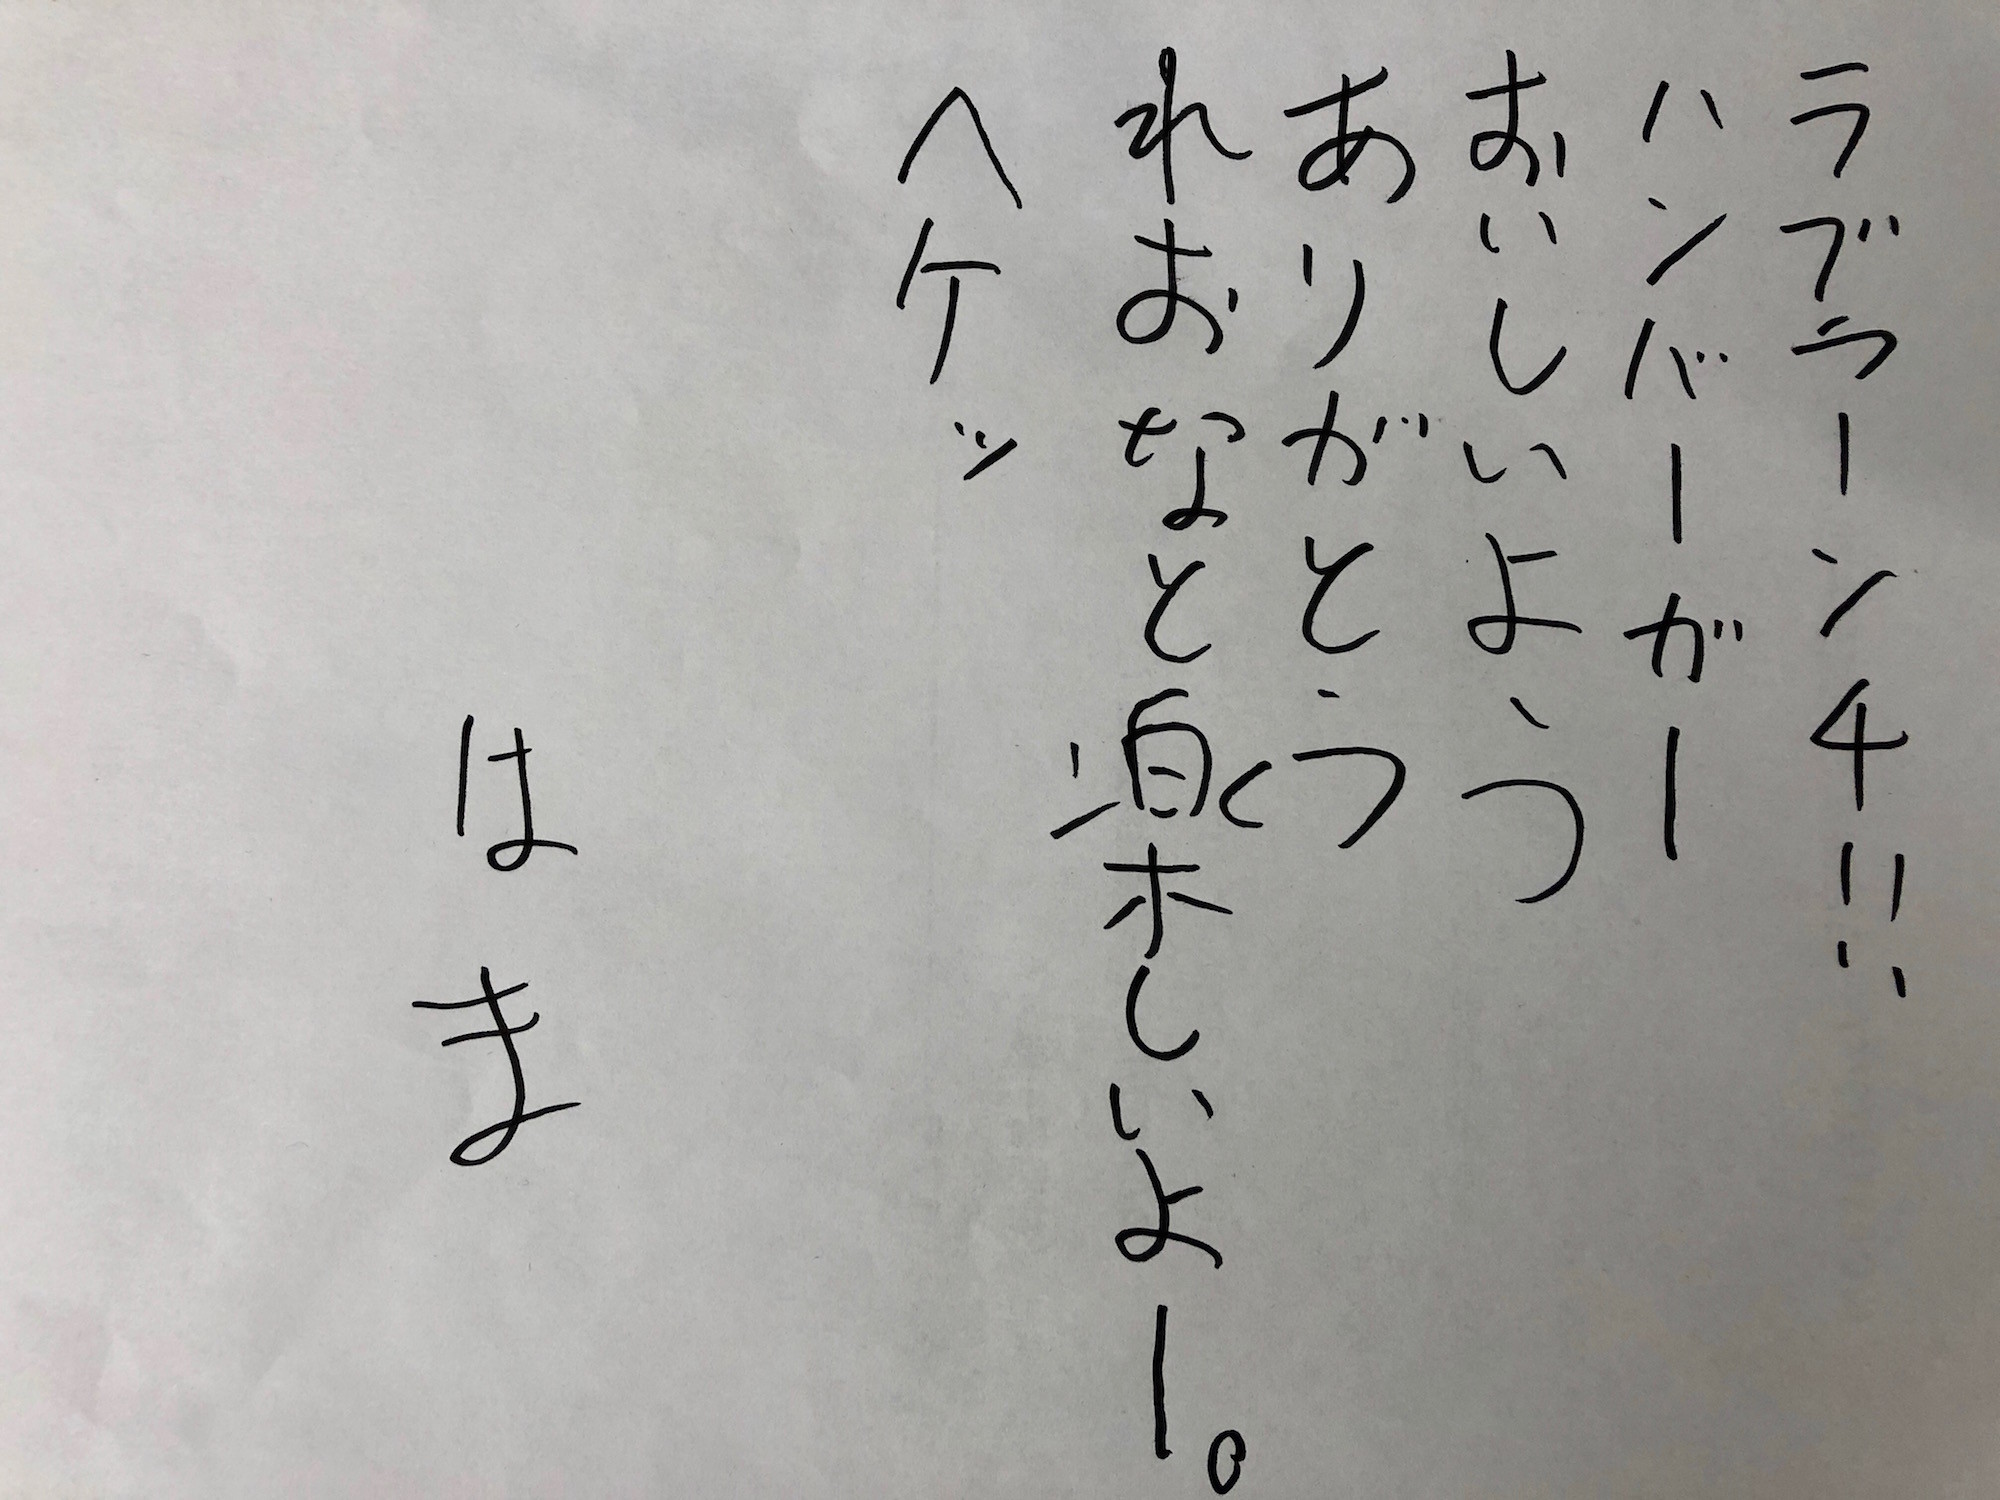 ラブラーンチ!!
ハンバーガー
おいしいよう
ありがとう
れおなと楽しいよー。
ヘケッ
はま